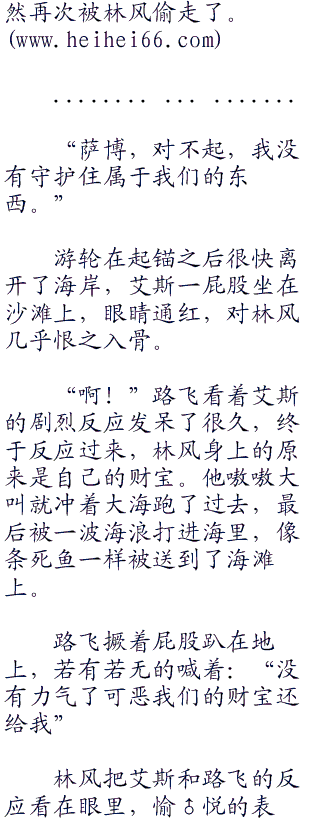 然再次被林风偷走了。
(www.heihei66.com)
........ ... .......
“萨博，对不起，我没
有守护住属于我们的东
西。”
游轮在起锚之后很快离
开了海岸，艾斯一屁股坐在
沙滩上，眼睛通红，对林风
几乎恨之入骨。
“啊！”路飞看着艾斯
的剧烈反应发呆了很久，终
于反应过来，林风身上的原
来是自己的财宝。他嗷嗷大
叫就冲着大海跑了过去，最
后被一波海浪打进海里，像
条死鱼一样被送到了海滩
上。
路飞撅着屁股趴在地
上，若有若无的喊着：“没
有力气了可恶我们的财宝还
给我”
林风把艾斯和路飞的反
应看在眼里，愉♁悦的表